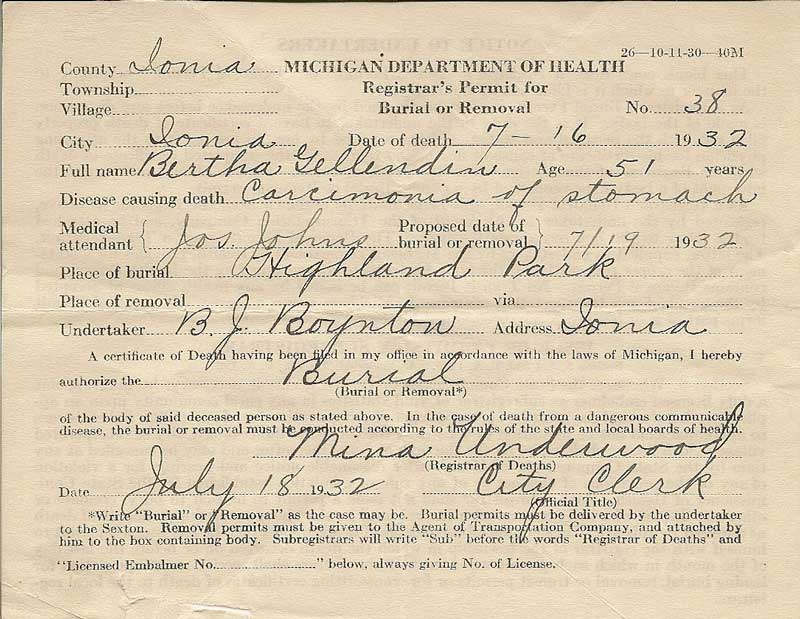 26—10-11-30—40M
County Ionia MICHIGAN DEPARTMENT OF HEALTH
Township Registrar's Permit for
Village Burial or Removal No. 38
City Ionia Date of death 7 - 16 1932
Full name Bertha Gellendin Age 51 years
Disease causing death Carcimonia of stomach
Medical attendant { Jos. Johns Proposed date of burial or removal } 7/19 1932
Place of burial Highland Park
Place of removal via
Undertaker B. J. Boynton Address Ionia
A certificate of Death having been filed in my office in accordance with the laws of Michigan, I hereby
authorize the Burial
(Burial or Removal*)
of the body of said deceased person as stated above. In the case of death from a dangerous communicable
disease, the burial or removal must be conducted according to the rules of the state and local boards of health.
Mina Underwood
(Registrar of Deaths)
Date July 18 1932 City Clerk
(Official Title)
*Write "Burial" or "Removal" as the case may be. Burial permits must be delivered by the undertaker
to the Sexton. Removal permits must be given to the Agent of Transportation Company, and attached by
him to the box containing body. Subregistrars will write "Sub" before the words "Registrar of Deaths" and
"Licensed Embalmer No. " below, always giving No. of License.